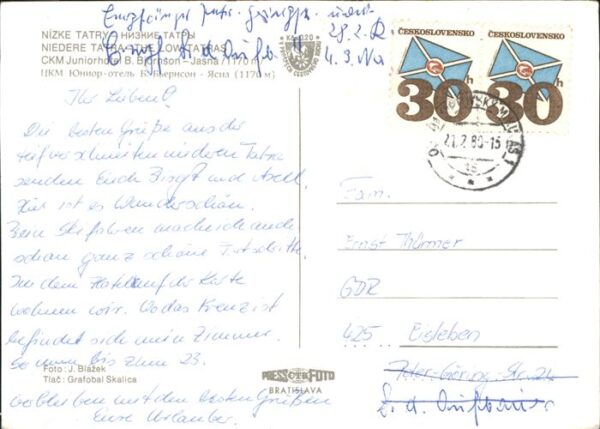 28.2.
NÍZKE TATRY · НИЗКИЕ ТАТРЫ
NIEDERE TATRA · THE LOW TATRAS
CKM Juniorhotel B. Björnson - Jasná (1170 m)
ЦКМ Юниор-отель Б. Бьернсон - Ясна (1170 м)
4. 3.
ČESKOSLOVENSKO
30h
ČESKOSLOVENSKO
30h
21.2.80-15
Ihr Lieben!
Die besten Grüße aus der
tiefverschneiten niederen Tatra
senden Euch Birgit und Axel.
Hier ist es wunderschön.
Beim Skifahren mache ich auch
schon ganz schöne Fortschritte.
In dem Hotel auf der Karte
wohnen wir. Wo das Kreuz ist
befindet sich mein Zimmer.
So nun bis zum 23.
verbleiben mit den besten Grüßen
Eure Urlauber.
Fam.
Ernst Thürmer
GDR
425 Eisleben
Peter-Göring-Str. 26
Foto: J. Blažek
Tlač: Grafobal Skalica
PRESSFOTO
ČTK
BRATISLAVA